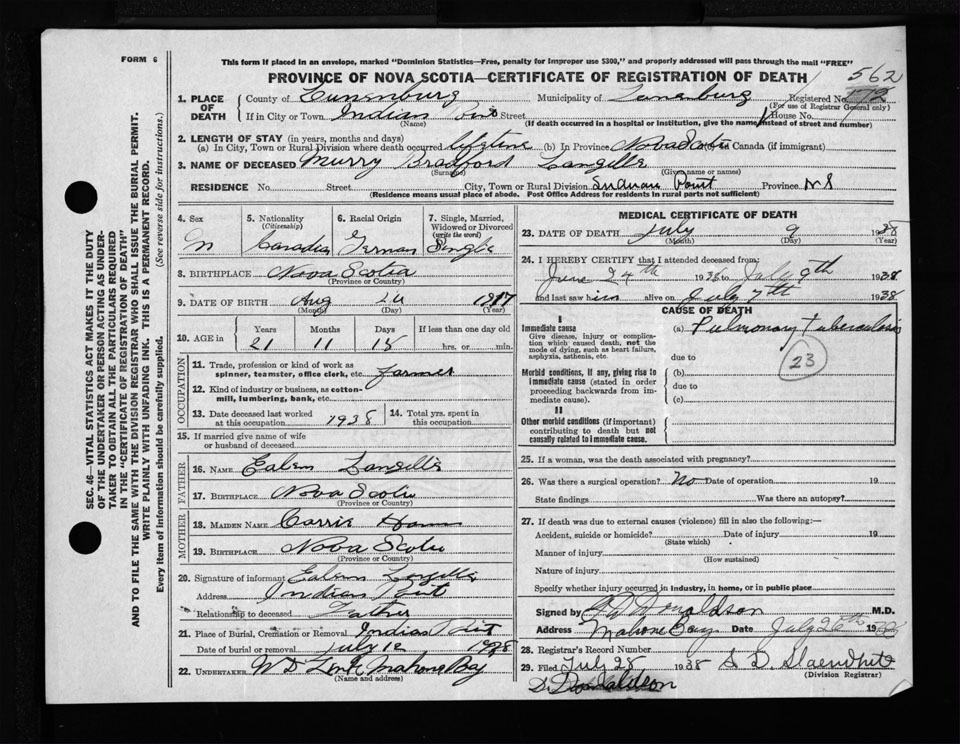 FORM 6
This form if placed in an envelope, marked "Dominion Statistics—Free, penalty for improper use $300," and properly addressed will pass through the mail "FREE"
PROVINCE OF NOVA SCOTIA—CERTIFICATE OF REGISTRATION OF DEATH
562
1. PLACE OF DEATH County of Lunenburg Municipality of Lunenburg Registered No. 172
(For use of Registrar General only)
If in City or Town Indian Point Street House No.
(Name) (If death occurred in a hospital or institution, give the name instead of street and number)
2. LENGTH OF STAY (in years, months and days)
(a) In City, Town or Rural Division where death occurred lifetime (b) In Province Nova Scotia Canada (if immigrant)
3. NAME OF DECEASED Murry Bradford Langille
(Surname) (Given name or names)
RESIDENCE No. Street City, Town or Rural Division Indian Point Province N S
(Residence means usual place of abode. Post Office Address for residents in rural parts not sufficient)
4. Sex M
5. Nationality (Citizenship) Canadian
6. Racial Origin German
7. Single, Married, Widowed or Divorced (write the word) Single
8. BIRTHPLACE Nova Scotia
(Province or Country)
9. DATE OF BIRTH Aug 24 1917
(Month) (Day) (Year)
10. AGE in Years 21 Months 11 Days 15 If less than one day old hrs. or min.
OCCUPATION
11. Trade, profession or kind of work as spinner, teamster, office clerk, etc. Farmer
12. Kind of industry or business, as cotton-mill, lumbering, bank, etc.
13. Date deceased last worked at this occupation 1938
14. Total yrs. spent in this occupation
15. If married give name of wife or husband of deceased
FATHER
16. NAME Langille
17. BIRTHPLACE Nova Scotia
(Province or Country)
MOTHER
18. MAIDEN NAME Carrie
19. BIRTHPLACE Nova Scotia
(Province or Country)
20. Signature of informant Langille
Address Indian Point
Relationship to deceased Father
21. Place of Burial, Cremation or Removal Indian Point
Date of burial or removal July 12 1938
22. UNDERTAKER W D Zink Mahone Bay
(Name and address)
MEDICAL CERTIFICATE OF DEATH
23. DATE OF DEATH July 9 1938
(Month) (Day) (Year)
24. I HEREBY CERTIFY that I attended deceased from
June 24th 1938 to July 9th 1938
and last saw him alive on July 7th 1938
CAUSE OF DEATH
I
Immediate cause
Give disease, injury or complication which caused death, not the mode of dying, such as heart failure, asphyxia, asthenia, etc.
(a) Pulmonary Tuberculosis
due to
23
Morbid conditions, if any, giving rise to immediate cause (stated in order proceeding backwards from immediate cause).
(b)
due to
(c)
II
Other morbid conditions (if important) contributing to death but not causally related to immediate cause.
25. If a woman, was the death associated with pregnancy?
26. Was there a surgical operation? No Date of operation 19
State findings Was there an autopsy?
27. If death was due to external causes (violence) fill in also the following:—
Accident, suicide or homicide? Date of injury 19
(State which)
Manner of injury
(How sustained)
Nature of injury
Specify whether injury occurred in industry, in home, or in public place
Signed by Donaldson M.D.
Address Mahone Bay Date July 26th 1938
28. Registrar's Record Number
29. Filed July 28 1938 S D Slaenwhite
(Division Registrar)
Dr Donaldson
SEC. 46—VITAL STATISTICS ACT MAKES IT THE DUTY OF THE UNDERTAKER OR PERSON ACTING AS UNDERTAKER TO OBTAIN ALL THE PARTICULARS REQUIRED IN THE "CERTIFICATE OF REGISTRATION OF DEATH" AND TO FILE THE SAME WITH THE DIVISION REGISTRAR WHO SHALL ISSUE THE BURIAL PERMIT.
WRITE PLAINLY WITH UNFADING INK. THIS IS A PERMANENT RECORD.
Every item of information should be carefully supplied. (See reverse side for instructions.)